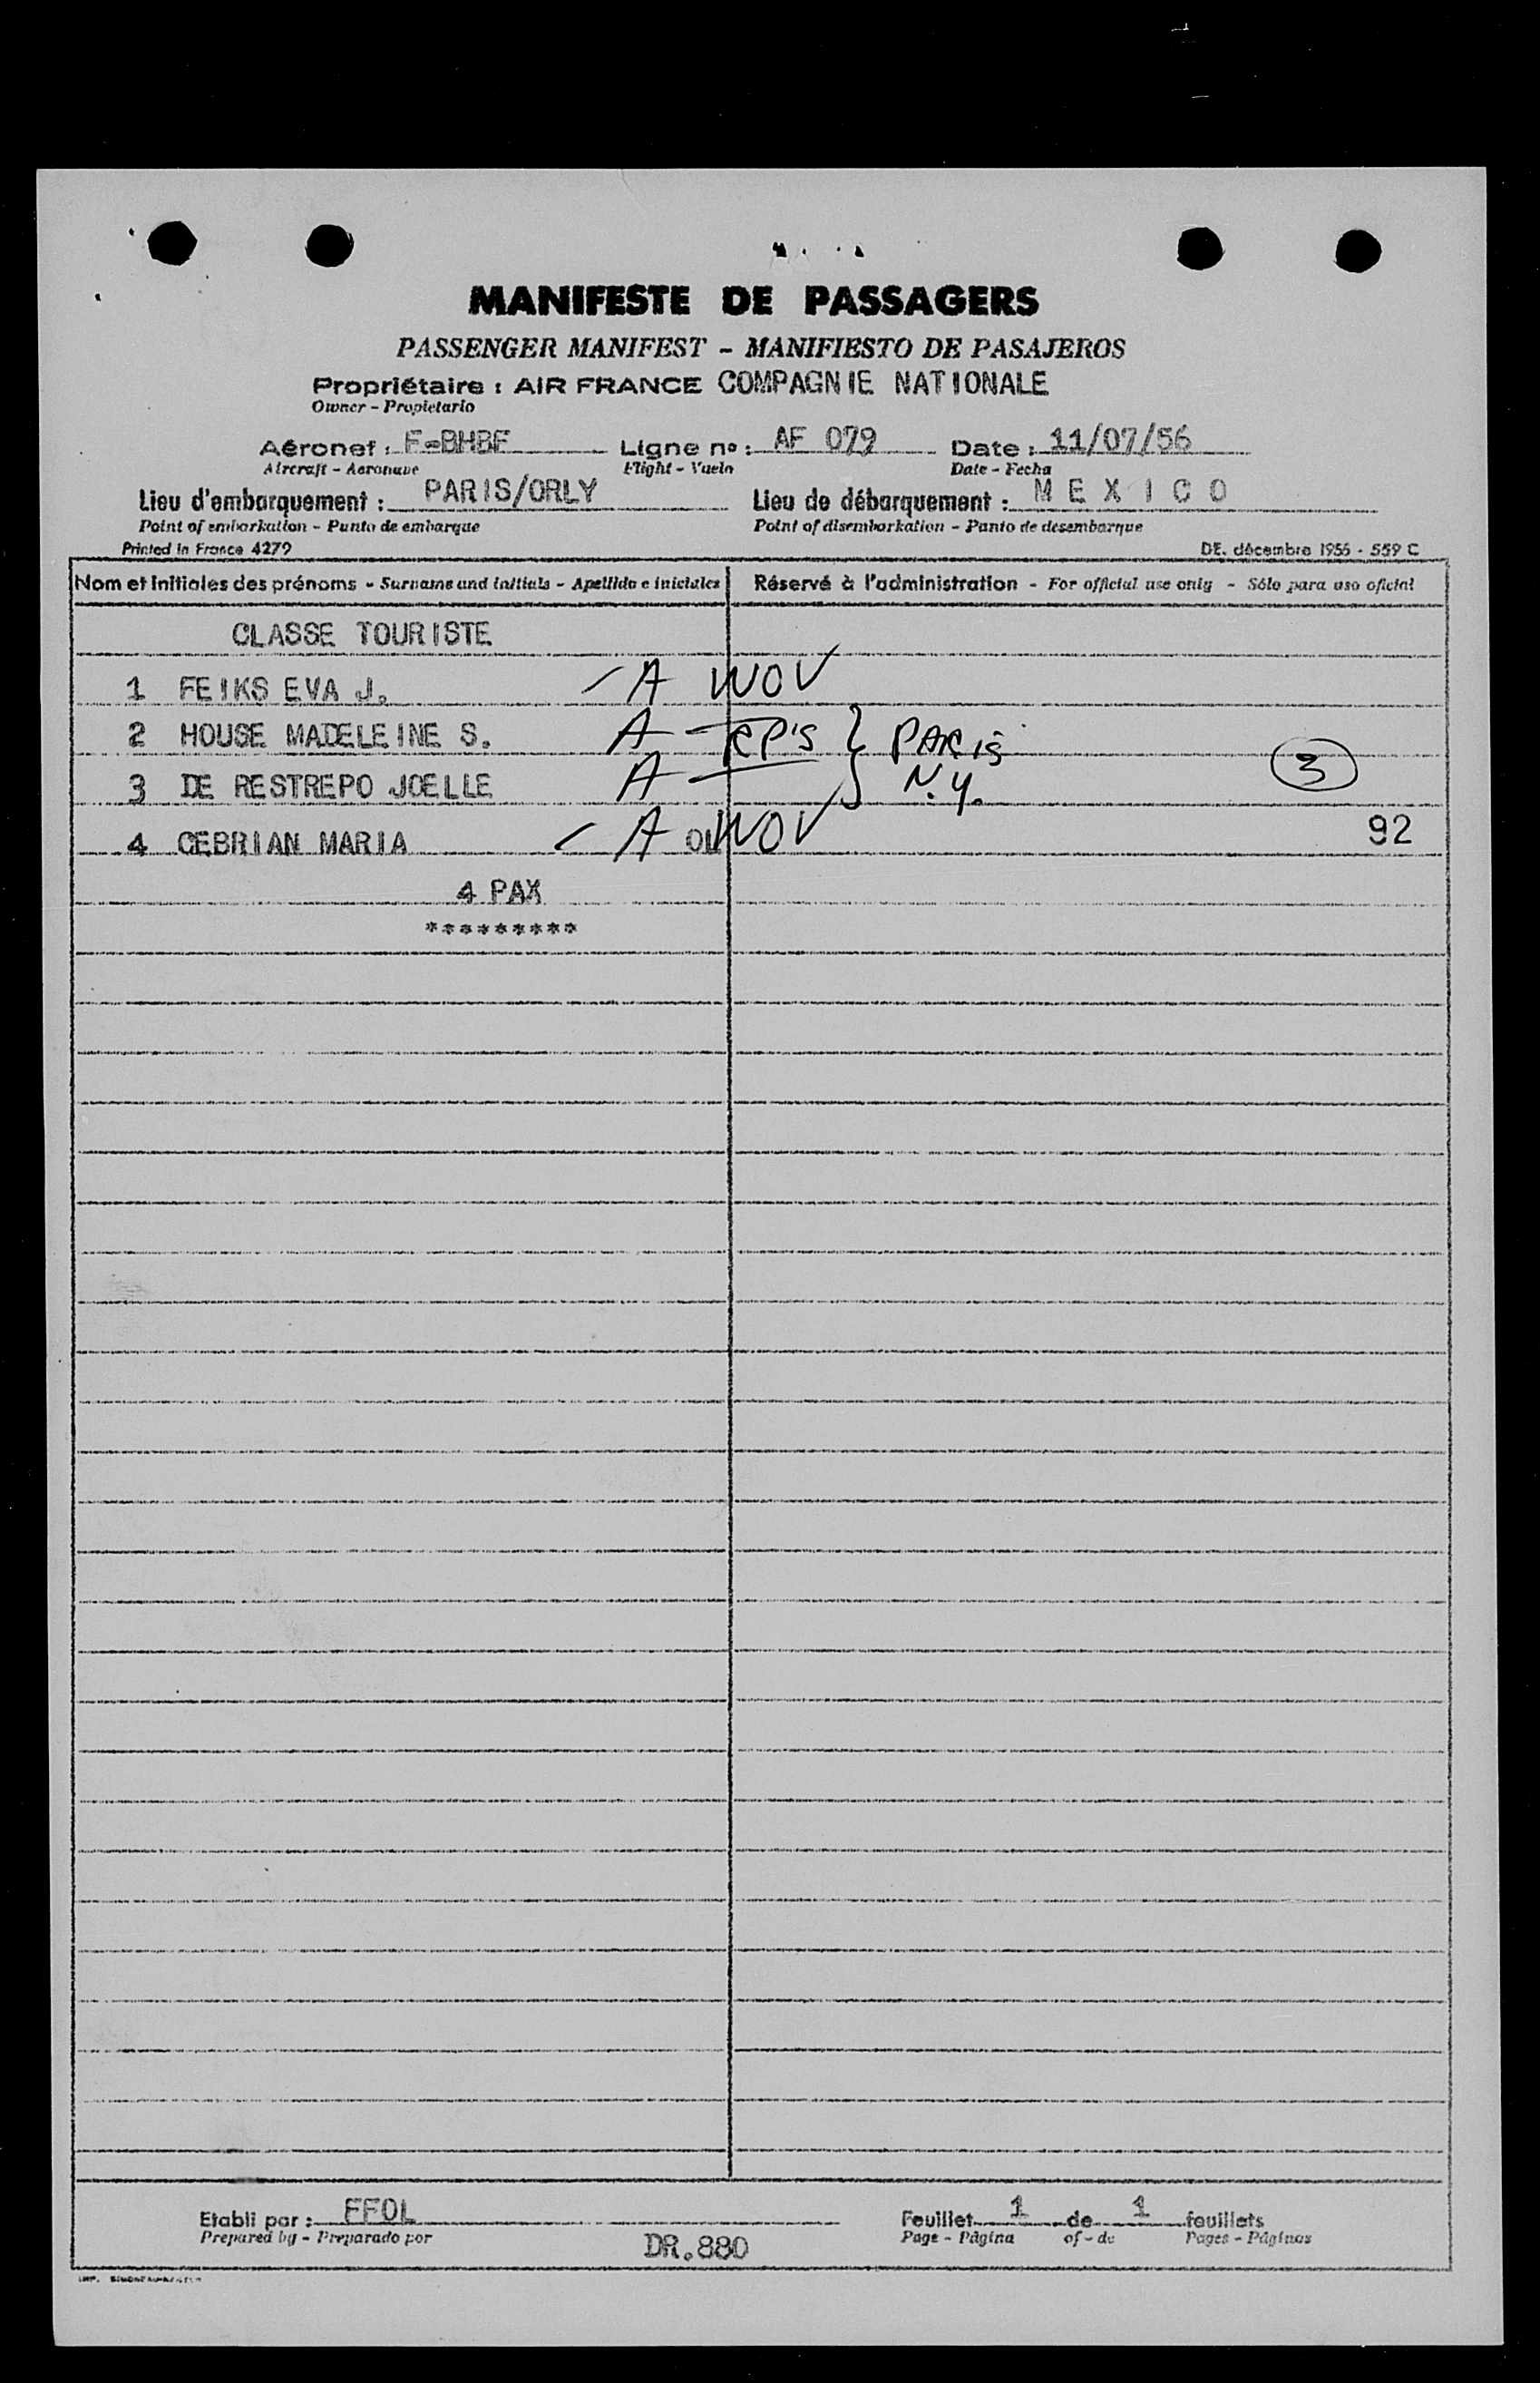 MANIFESTE DE PASSAGERS
PASSENGER MANIFEST - MANIFIESTO DE PASAJEROS
Propriétaire : AIR FRANCE COMPAGNIE NATIONALE
Owner - Propietario
Aéronef : F-BHBF Ligne nº : AF 079 Date : 11/07/56
Aircraft - Aeronave Flight - Vuelo Date - Fecha
Lieu d'embarquement : PARIS/ORLY Lieu de débarquement : M E X I C O
Point of embarkation - Punto de embarque Point of disembarkation - Punto de desembarque
Printed in France 4279 DE. décembre 1955 - 559 C
Nom et initiales des prénoms - Surname and initials - Apellido e iniciales Réservé à l'administration - For official use only - Sólo para uso oficial
CLASSE TOURISTE
1 FEIKS EVA J. A WOV
2 HOUSE MADELEINE S. A RP'S } PARIS
3 DE RESTREPO JOELLE A N.Y. 3
4 CEBRIAN MARIA A WOV 92
4 PAX
*********
Etabli par : FFOL Feuillet 1 de 1 feuillets
Prepared by - Preparado por Page - Página of - de Pages - Páginas
DR.880